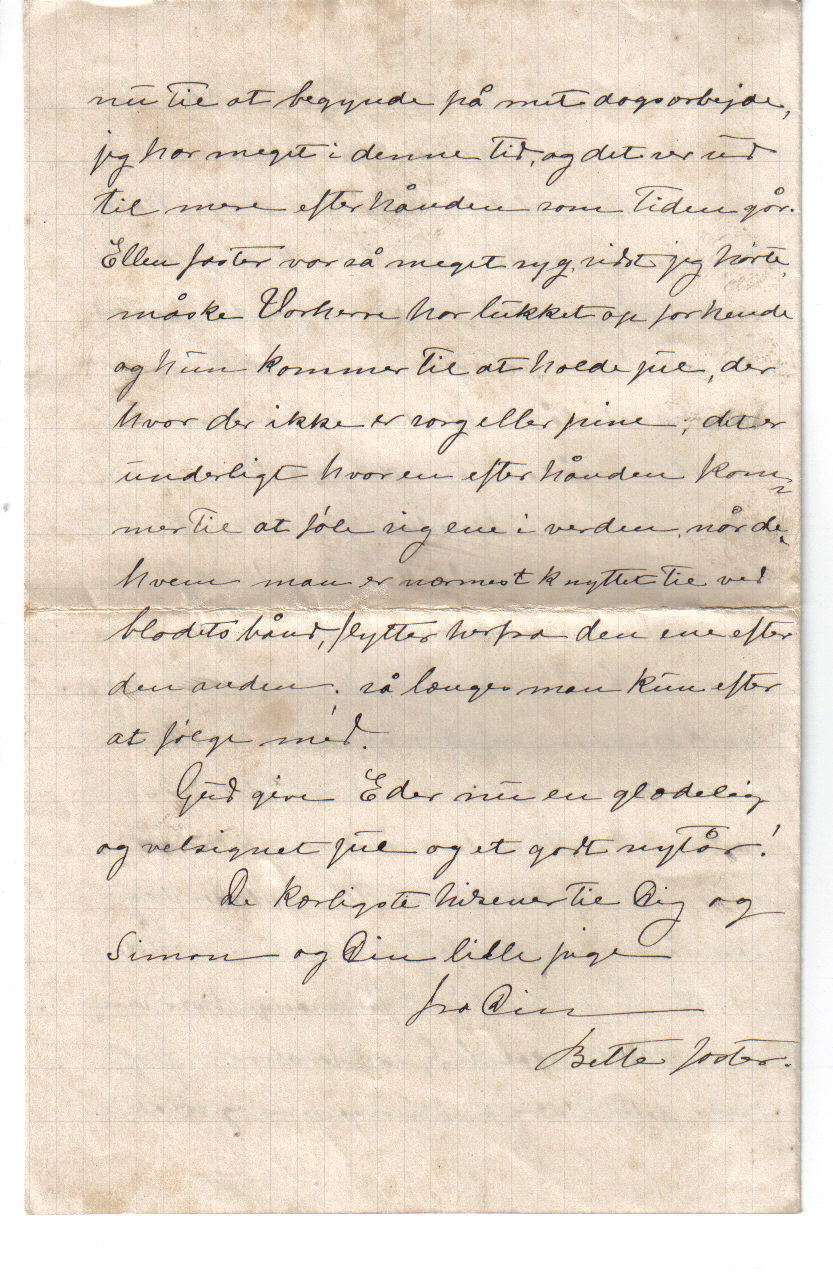 nu til at begynde på mit dagsarbejde,
jeg har meget i denne tid, og det ser ud
til mere efterhånden som tiden går.
Ellen faster var så meget syg, sidst jeg hørte,
måske Vorherre har lukket op for hende
og hun kommer til at holde jul, der
hvor der ikke er sorg eller pine; det er
underligt hvor en efterhånden kom-
mer til at føle sig ene i verden, når de,
hvem man er nærmest knyttet til ved
blodets bånd, flytter herfra den ene efter
den anden. så længes man kun efter
at følge med.
Gud give Eder nu en glædelig
og velsignet jul og et godt nytår!
De kærligste hilsener til Dig og
Simon og Din lille pige
fra Din
Bette faster.